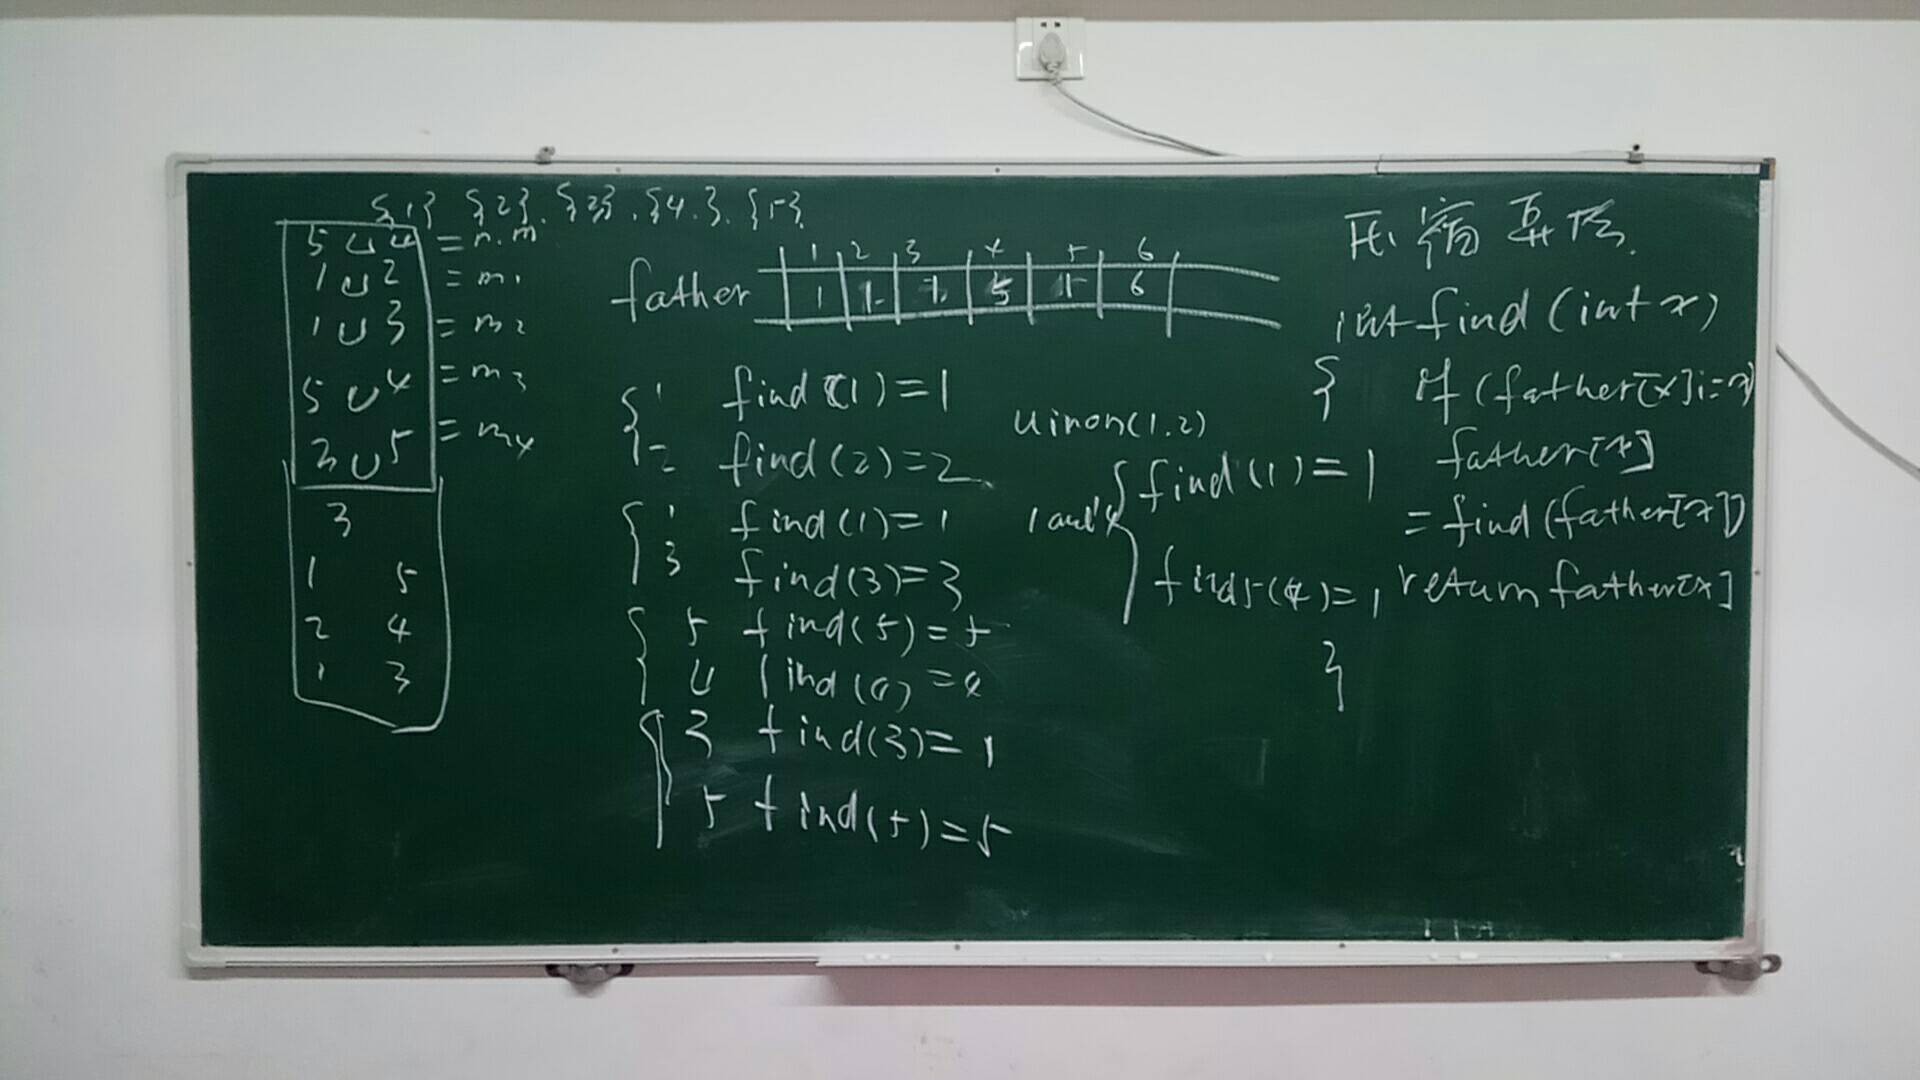 {1} {2}. {3}. {4.}. {5}
5 4 4 = n.m
1 ∪ 2 = m1
1 ∪ 3 = m2
5 ∪ 4 = m3
3 ∪ 5 = m4
3
1 5
2 4
1 3
father
1 2 3 4 5 6
1 1 1 5 1 6
1 find(1)=1
2 find(2)=2
1 find(1)=1
3 find(3)=3
5 find(5)=5
4 find(4)=4
3 find(3)=1
5 find(5)=5
Uinon(1.2)
find(1)=1
1 and 4
find5(4)=1
int find(int x)
{ if (father[x]!=x)
father[x]
=find(father[x])
return father[x]
}